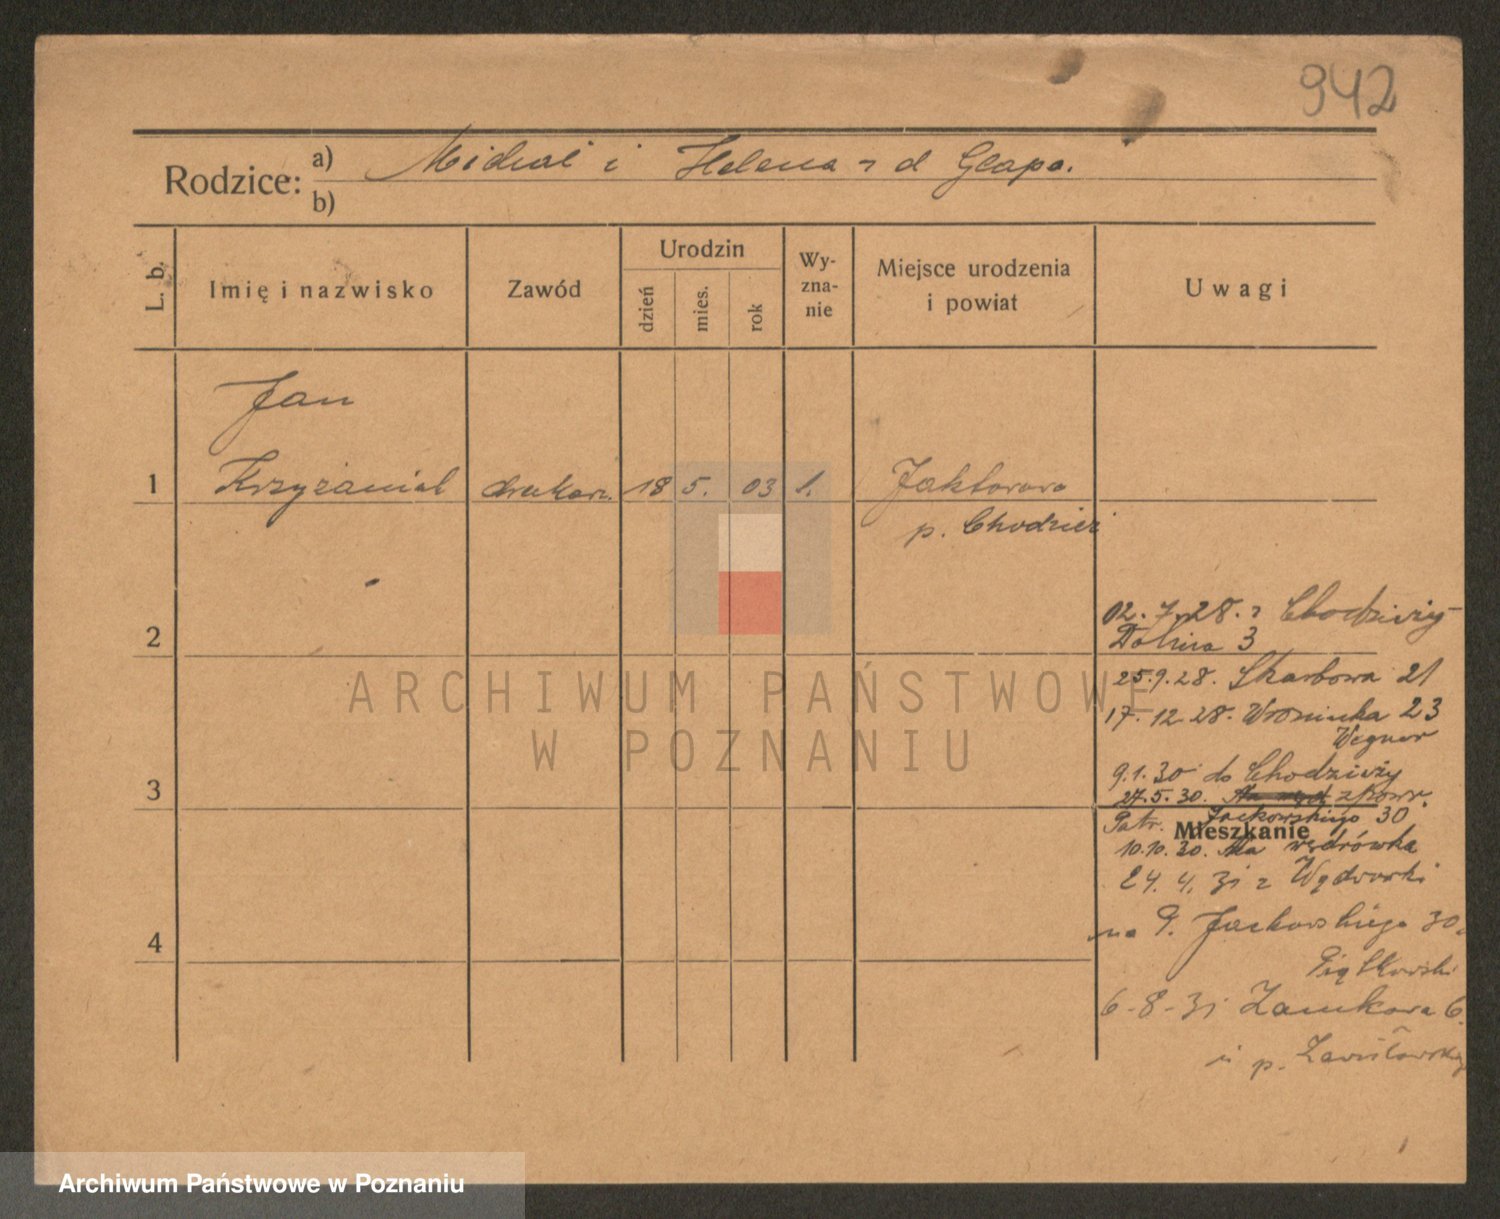 942
Rodzice: a) Michał i Helena z d Glapa.
b)
L. b. Imię i nazwisko Zawód Urodzin dzień mies. rok Wy-zna-nie Miejsce urodzenia i powiat Uwagi
Jan
1 Krzyżaniak drukarz. 18 5. 03 1. Jaktorowo
p. Chodzież
02.7.28. z Chodzieży
2 Dolina 3
25.9.28. Skarbowa 21
17.12.28. Wroniecka 23
Wegner
9.1.30 do Chodzieży
3 27.5.30. z powr.
Patr. Jackowskiego 30
Mieszkanie
10.10.30. Na wędrówkę
24.4.31 z Wędrówki
na P. Jackowskiego 30
4
Piątkowski
6-8-31 Zamkowa 6
u p.
ARCHIWUM PAŃSTWOWE
W POZNANIU
Archiwum Państwowe w Poznaniu